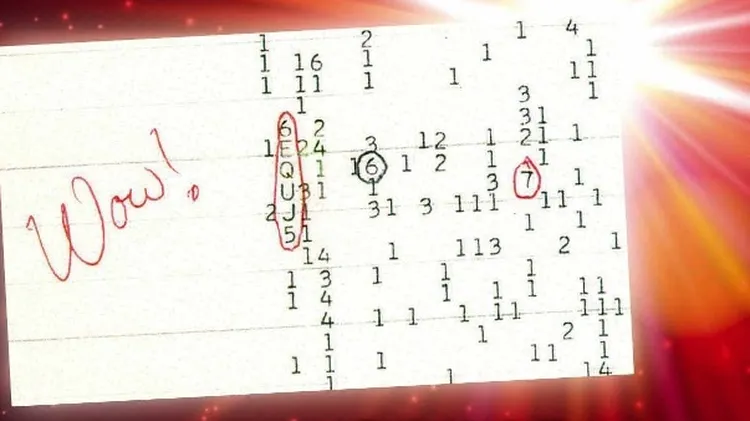 1 2 1 4
1 16 1 1 1
1 11 1 1 11
1 3 1
6 2 31
1 E 24 3 12 1 21 1
Q 1 16 1 2 1 1
U 31 1 3 7 1
2 J 1 31 3 111 11 1
5 1 1 1
Wow!
14 1 113 2 1
1 3 1 1 1
1 4 1 1 1 11
4 1 1 1 11 111
1 1 2 1
1 1 1 11 1
1 1 14